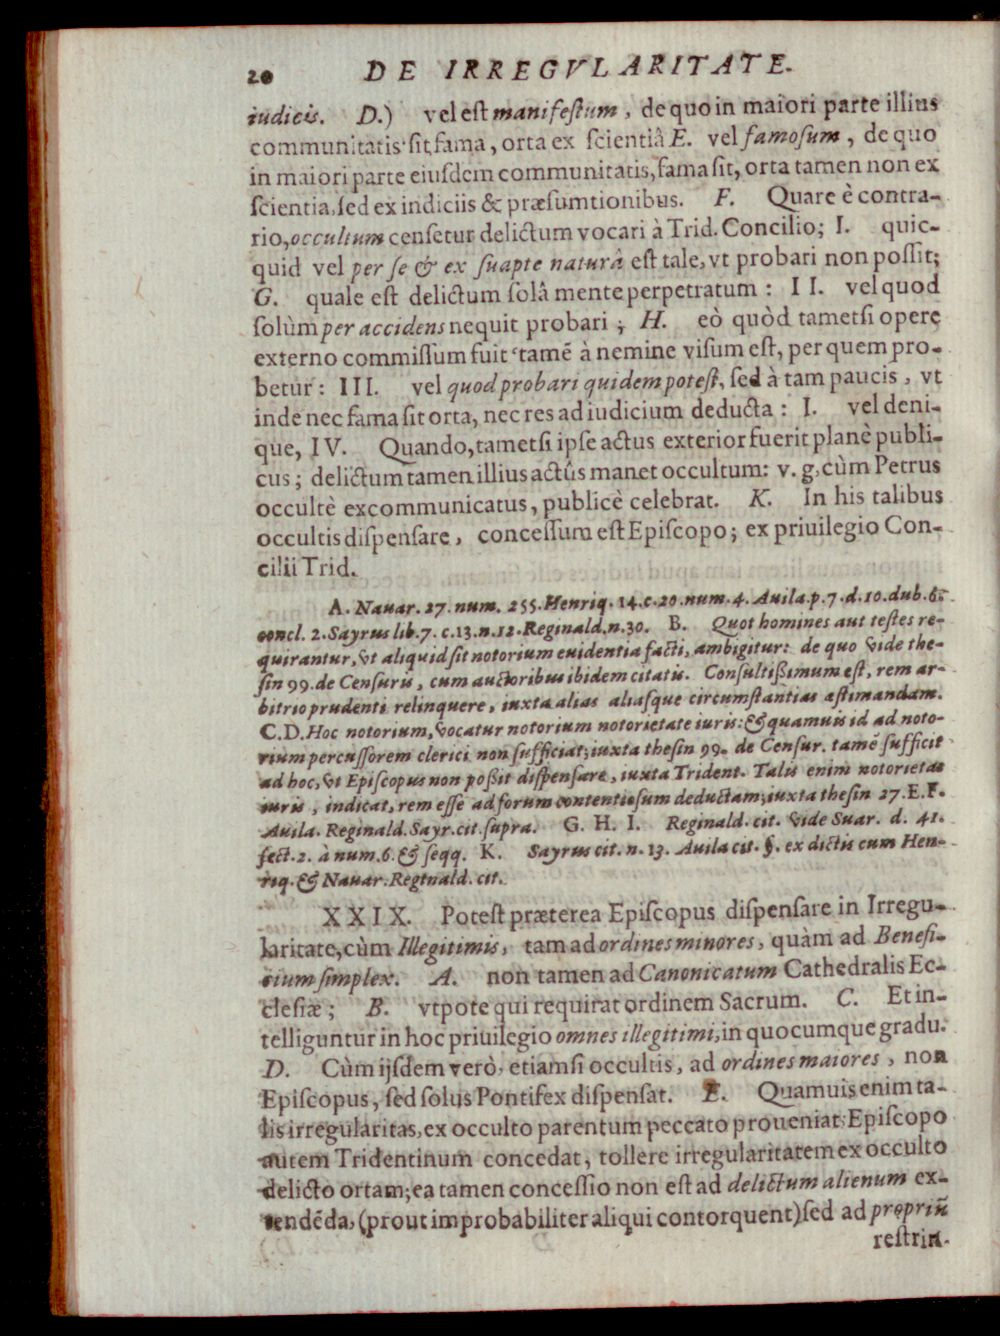 20 DE IRREGVLARITATE.
iudicis. D.) vel est manifestum, de quo in maiori parte illius
communitatis sit fama, orta ex scientiâ E. vel famosum, de quo
in maiori parte eiusdem communitatis, fama sit, orta tamen non ex
scientia, sed ex indiciis & præsumtionibus. F. Quare è contra-
rio, occultum censetur delictum vocari à Trid. Concilio; I. quic-
quid vel per se & ex suapte naturâ est tale, vt probari non possit;
G. quale est delictum solâ mente perpetratum: II. vel quod
solùm per accidens nequit probari; H. eò quòd tametsi opere
externo commissum fuit tamẽ à nemine visum est, per quem pro-
betur: III. vel quod probari quidem potest, sed à tam paucis, vt
inde nec fama sit orta, nec res ad iudicium deducta: I. vel deni-
que, IV. Quando, tametsi ipse actus exterior fuerit planè publi-
cus; delictum tamen illius actûs manet occultum: v. g. cùm Petrus
occultè excommunicatus, publicè celebrat. K. In his talibus
occultis dispensare, concessum est Episcopo; ex priuilegio Con-
cilii Trid.
A. Nauar. 27. num. 255. Henriq. 14. c. 20. num. 4. Auila. p. 7. d. 10. dub. 6.
concl. 2. Sayrus lib. 7. c. 13. n. 12. Reginald. n. 30. B. Quot homines aut testes re-
quirantur, vt aliquid sit notorium euidentia facti, ambigitur: de quo vide the-
sin 99. de Censuris, cum auctoribus ibidem citatis. Consultißimum est, rem ar-
bitrio prudenti relinquere, iuxta alias aliasque circumstantias æstimandam.
C. D. Hoc notorium, vocatur notorium notorietate iuris: & quamuis id ad noto-
rium percussorem clerici non sufficiat; iuxta thesin 99. de Censur. tamẽ sufficit
ad hoc, vt Episcopus non poßit dispensare, iuxta Trident. Talis enim notorietas
iuris, indicat, rem esse ad forum contentiosum deductam; iuxta thesin 27. E. F.
Auila. Reginald. Sayr. cit. supra. G. H. I. Reginald. cit. vide Suar. d. 41.
sect. 2. à num. 6. & seqq. K. Sayrus cit. n. 13. Auila cit. §. ex dictis cum Hen-
riq. & Nauar. Reginald. cit.
XXIX. Potest præterea Episcopus dispensare in Irregu-
laritate, cùm Illegitimis, tam ad ordines minores, quàm ad Benefi-
cium simplex. A. non tamen ad Canonicatum Cathedralis Ec-
clesiæ; B. vtpote qui requirat ordinem Sacrum. C. Et in-
telliguntur in hoc priuilegio omnes illegitimi, in quocumque gradu.
D. Cùm ijsdem verò, etiamsi occultis, ad ordines maiores, non
Episcopus, sed solus Pontifex dispensat. E. Quamuis enim ta-
lis irregularitas, ex occulto parentum peccato proueniat: Episcopo
autem Tridentinum concedat, tollere irregularitatem ex occulto
delicto ortam; ea tamen concessio non est ad delictum alienum ex-
tendẽda, (prout improbabiliter aliqui contorquent) sed ad propriũ
restrin-